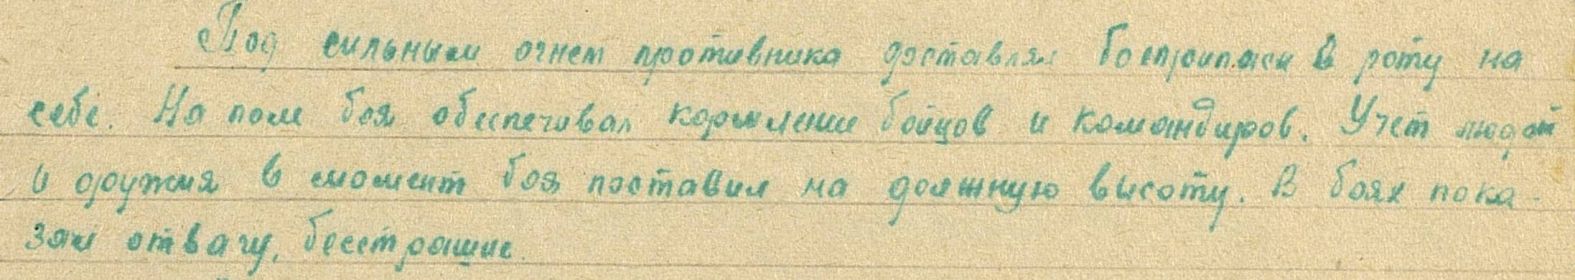 Под сильным огнем противника доставлял боеприпасы в роту на
себе. На поле боя обеспечивал кормление бойцов и командиров. Учет людей
и оружия в момент боя поставил на должную высоту. В боях пока-
зал отвагу, бесстрашие.